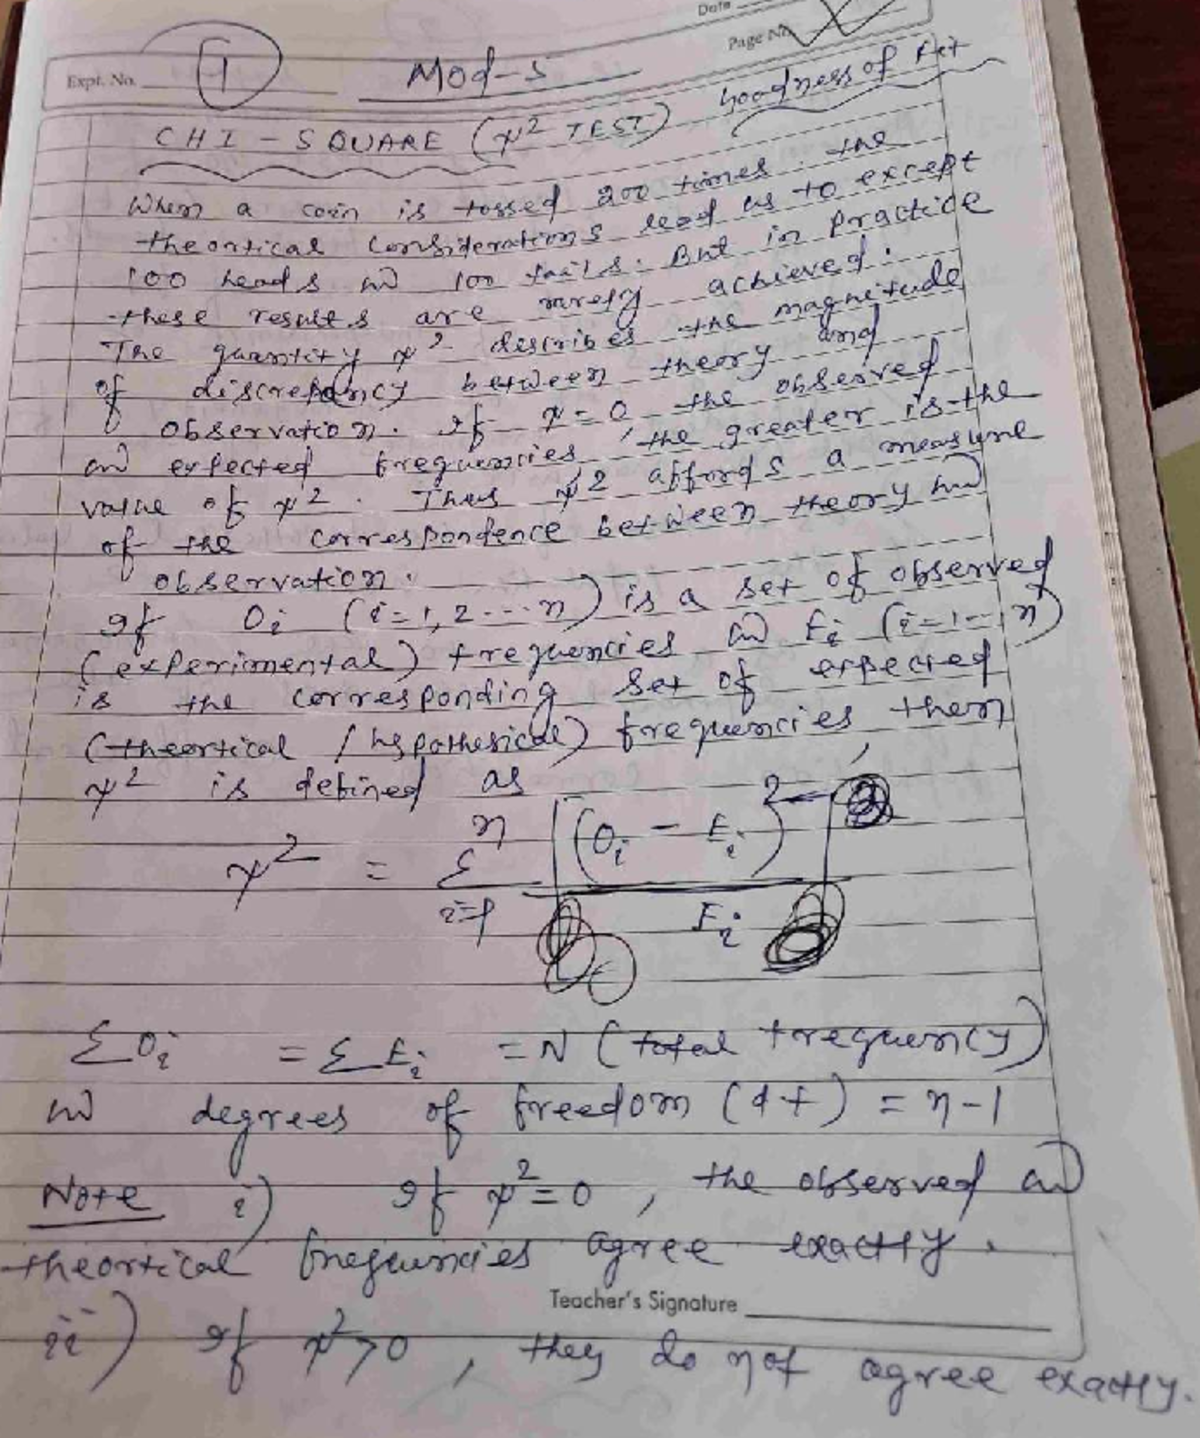 Date
Page No.
Expt. No. 1 Mod-5
CHI-SQUARE (χ² TEST) Goodness of Fit
When a coin is tossed 200 times. the
theortical considerations lead us to except
100 heads and 100 tails. But in practice
these results are rarely achieved.
The quantity χ² describes the magnitude
of discrepancy between theory and
observation. If χ=0, the observed
and expected frequencies, the greater is the
value of χ². Thus χ² affords a measure
of the correspondence between theory and
observation.
If Oi (i=1,2---n) is a set of observed
(experimental) frequencies and Ei (i=1--,n)
is the corresponding set of expected
(theortical / hypothesical) frequencies then,
χ² is defined as
χ² = Σ n i=1 (Oi - Ei)² / Ei
ΣOi = ΣEi = N (total frequency)
and degrees of freedom (df) = n-1
Note i) If χ²=0, the observed and
theortical frequencies agree exactly.
Teacher's Signature
ii) If χ²>0, they do not agree exactly.